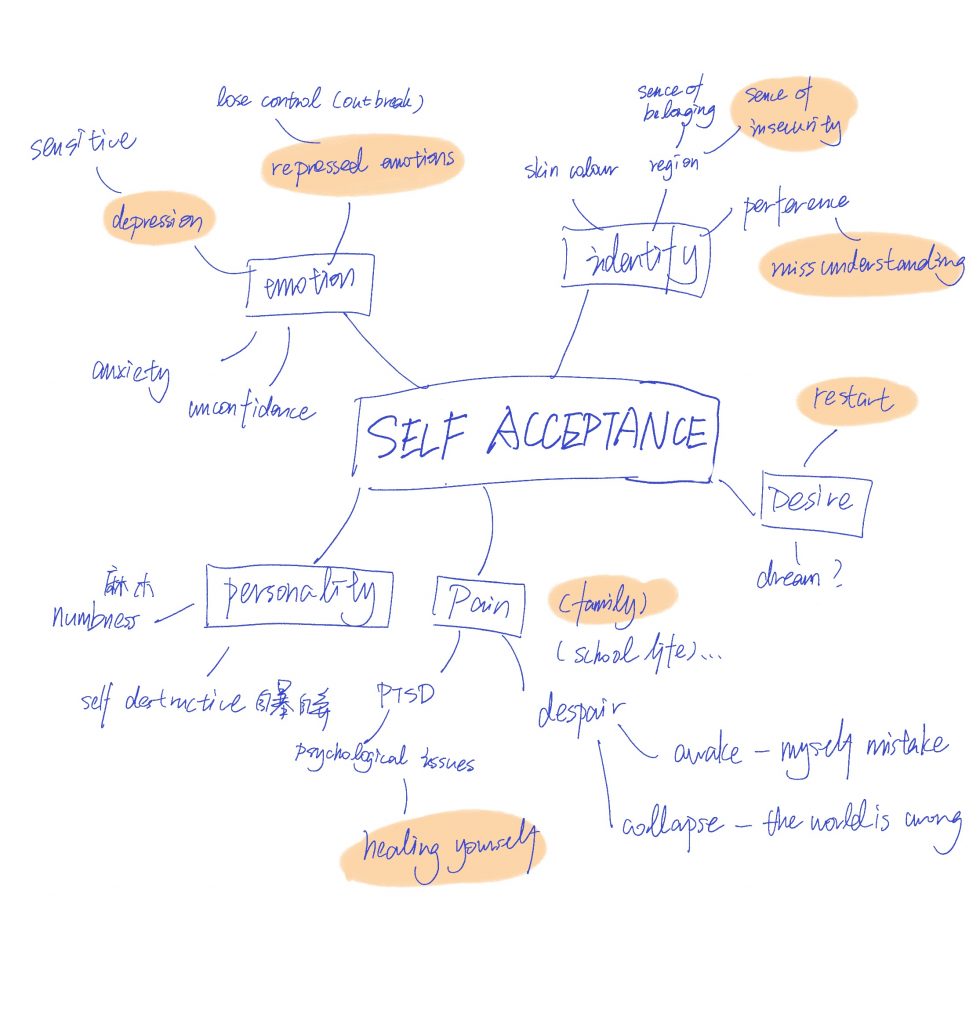 lose control (outbreak)
repressed emotions
sensitive
depression
emotion
anxiety
unconfidence
sence of
belonging
sence of
insecurity
skin colour
region
perference
missunderstanding
indentity
SELF ACCEPTANCE
restart
Desire
dream?
麻木
numbness
personality
self destructive 自暴自弃
Pain
(family)
(school life)...
PTSD
psychological issues
healing yourself
despair
awake - myself mistake
collapse - the world is wrong